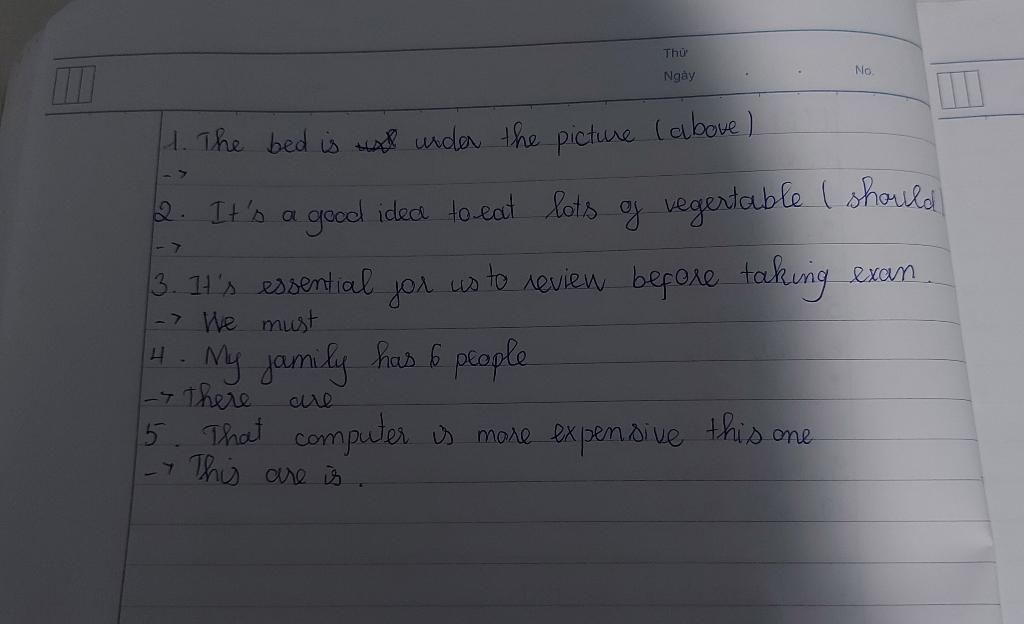 Thứ
Ngày . . No.
1. The bed is under the picture (above)
->
2. It's a good idea to eat lots of vegertable ( should
->
3. It's essential for us to review before taking exan.
-> We must
4. My family has 6 people
-> There are
5. That computer is more expensive this one
-> This one is.